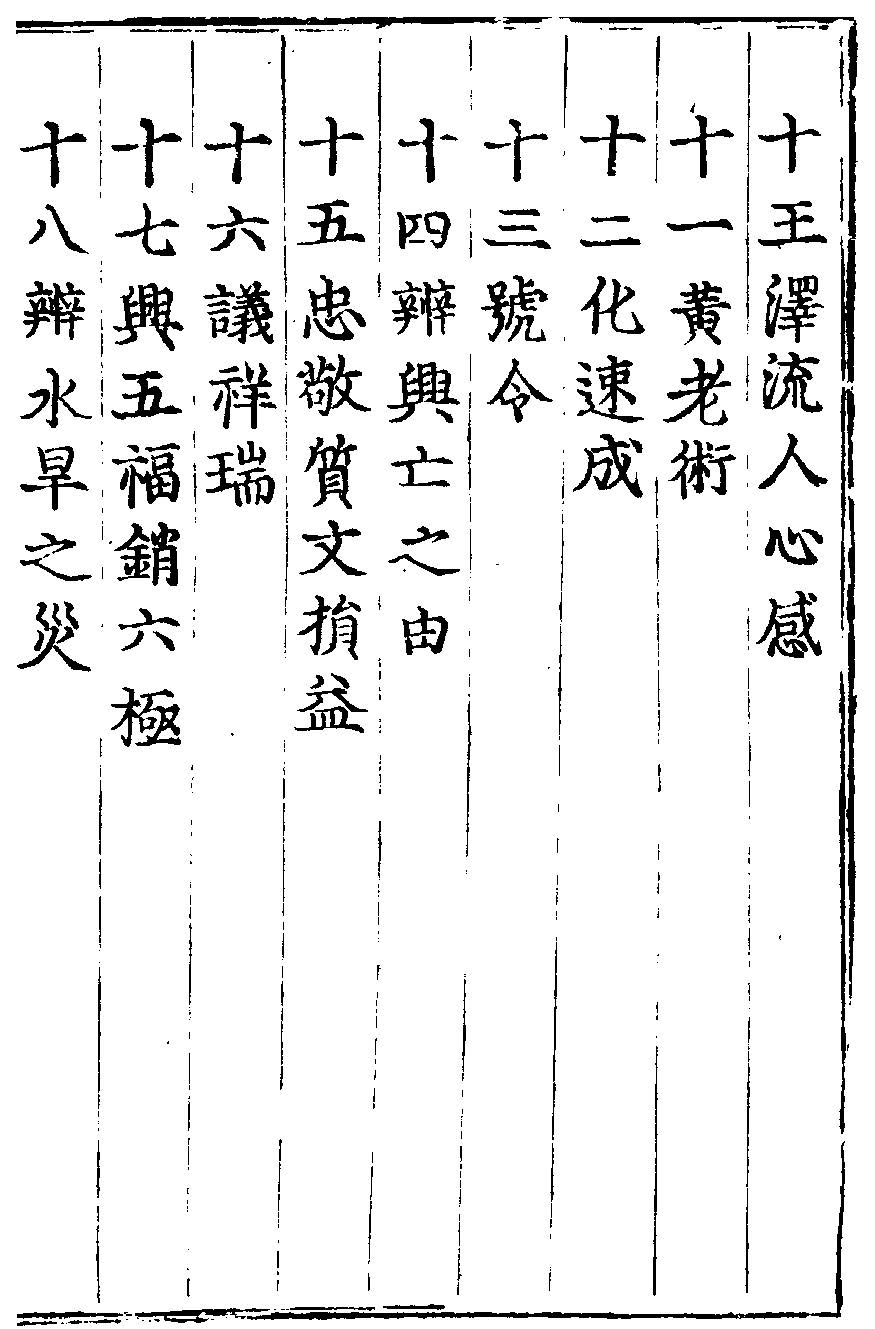 十王澤流人心感
十一黃老術
十二化速成
十三號令
十四辨興亡之由
十五忠敬質文損益
十六議祥瑞
十七興五福銷六極
十八辨水旱之災